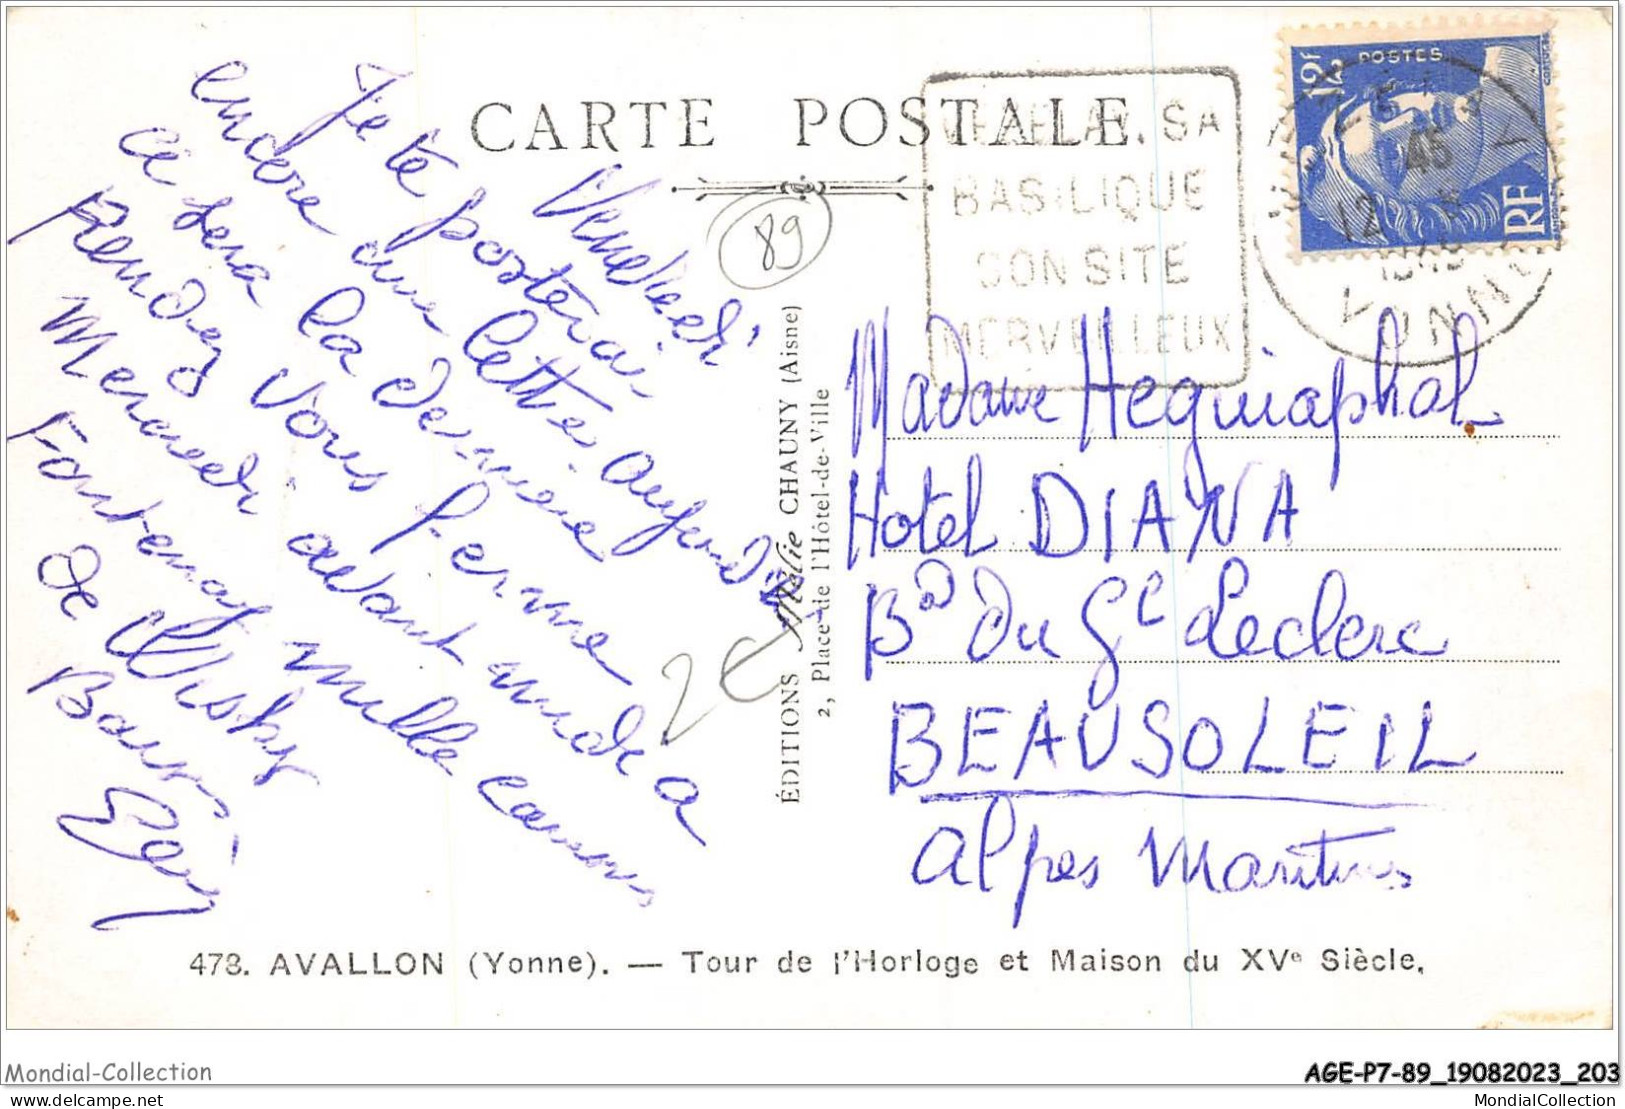 CARTE POSTALE
Vendredi
Je te posterai
encore une lettre aujourd'hui
ce sera la dernière
Rendez vous ferme
Mercredi avant midi a
Fontenay mille
de Wisky
89
2€
ÉDITIONS Mélie CHAUNY (Aisne)
2, Place de l'Hôtel-de-Ville
VEZELAY. SA
BASILIQUE
SON SITE
MERVEILLEUX
12F POSTES
RF
45
12
YONNE
Madame Hequiaphal
Hotel DIANA
Bd du Gl Leclerc
BEAUSOLEIL
Alpes Maritimes
473. AVALLON (Yonne). — Tour de l'Horloge et Maison du XVe Siècle.
Mondial-Collection
AGE-P7-89_19082023_203
www.delcampe.net
MondialCollection